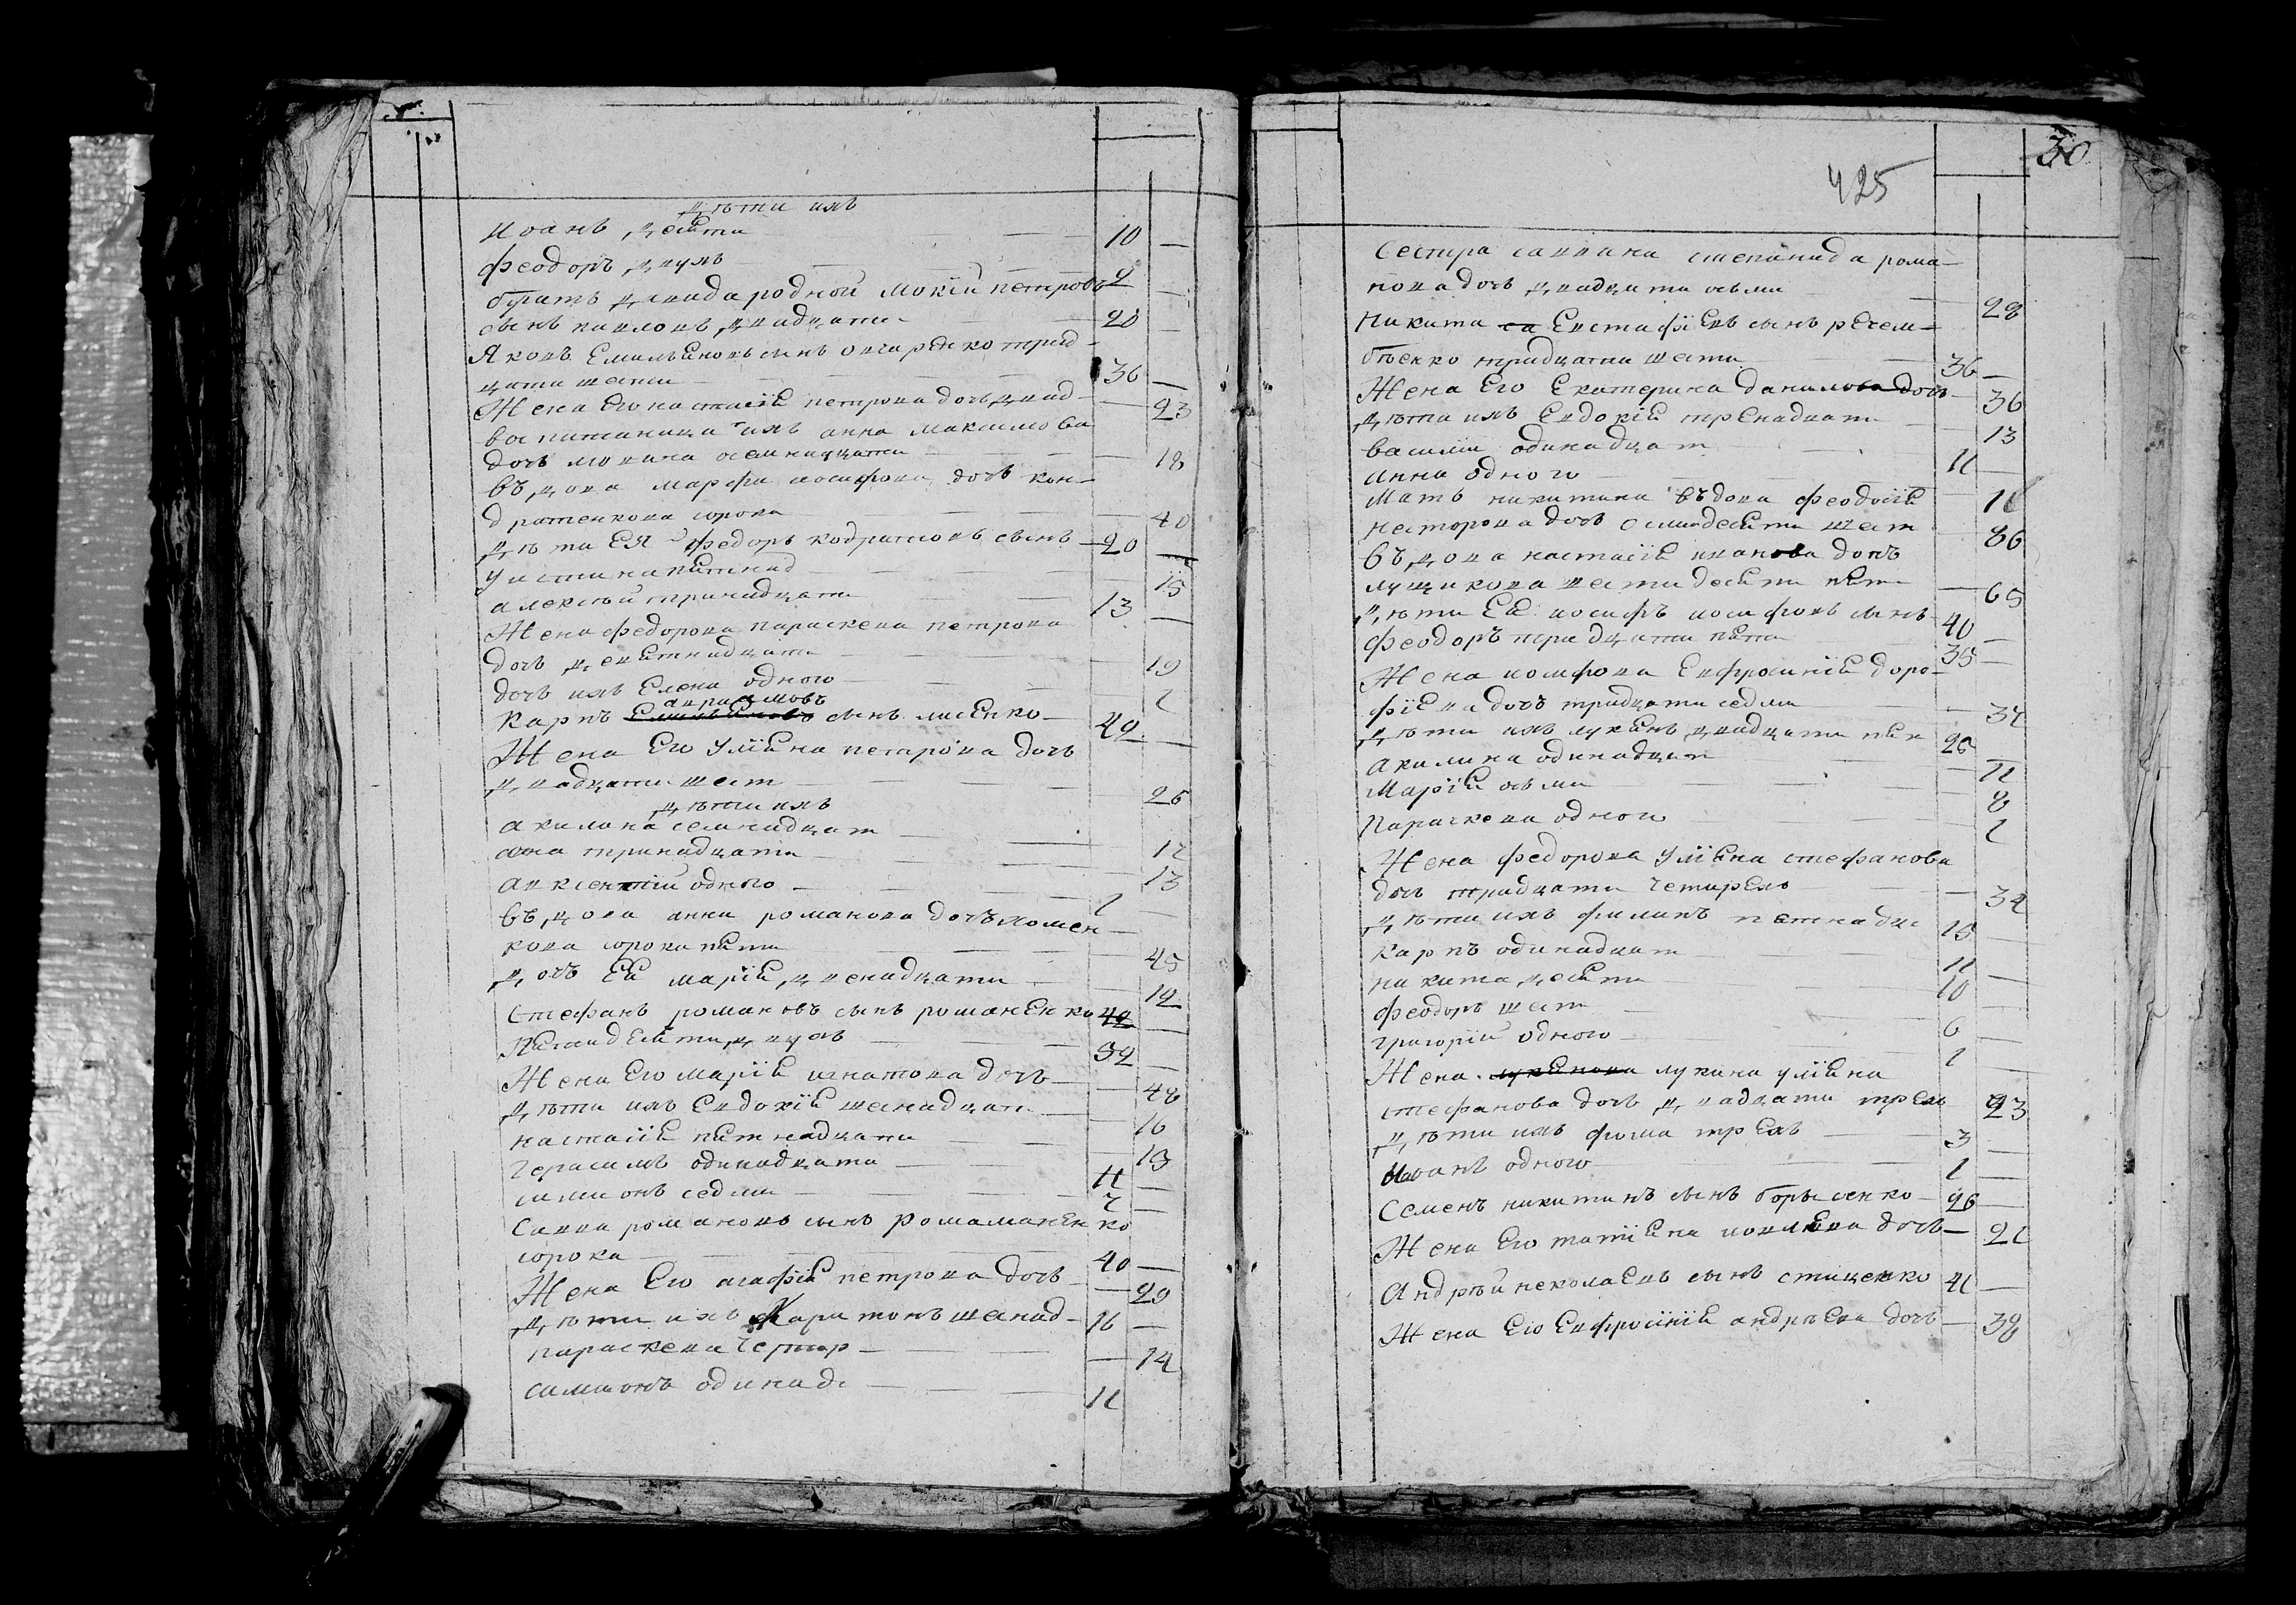 дѣти ихъ
Иоанъ десѣти — 10 —
Феодоръ двухъ — 2 —
братъ давида родной Мокїй петровъ
сынъ павловъ двадцати — 20 —
Яковъ Емельѣновъ сынъ овчаренко трид-
цати шести — 36 —
Жена Его настасїѣ петрова дочь двад- — 23
воспитаница ихъ анна Максимова
дочь осемнадцати — 18
въдова марфа иосифова дочь кон-
дратенкова сорока — 40
дѣти Ея федоръ кодратовъ сынъ — 20 —
Устина пѣтнад — 15
алексѣй тринадцати — 13 —
Жена федорова параскева петрова
дочь девѣтнадцати — 19
дочь ихъ Елена одного — 1
авраамовъ
Карпъ Емельѣновъ сынъ лисенко — 42 —
Жена Его Улїѣна петрова дочь
двадцати шест — 26
дѣти ихъ
акилина семнадцат — 17
анна тринадцати — 13
авксентїй одного — 1 —
въдова анна романова дочь хомен-
кова сорока пѣти — 45
дочь Еѣ марїѣ двенадцати — 12
Стефанъ романовъ сынъ романенко 42 —
Пѣтидесѣти двухъ — 52 —
Жена Его марїѣ игнатова дочь — 48
дѣти ихъ Евдокїѣ шенадцат — 16
настасїѣ пѣтнадцати — 15
герасимъ одинадцати — 11 —
симионъ седми — 7 —
Савва романовъ сынъ ромаманенко
сорока — 40 —
Жена Его агафїѣ петрова дочь — 29
дѣти ихъ Харитонъ шенад- 16 —
параскева Четыр — 14
симионъ одинад — 11
30
425
Сестра саввина степанида рома-
нова дочь двадцати осьми — 28
Никита са Евстафїевъ сынъ
тридцати шести — 36 —
Жена Его Екатерина данилова дочь — 36
дѣти ихъ Евдокїѣ тренадцат — 13
василїй одинадцат — 11 —
анна одного — 1
Мать никитина въдова феодосїѣ
несторова дочь осмидесѣти шест — 86
въдова настасїѣ иванова дочъ
лущикова шестидесѣти пѣти — 65
дѣти Еѣ иосифъ иосифовъ сынъ — 40 —
феодоръ тридцати пѣти — 35 —
Жена иосифова Евфросинїѣ доро-
фїева дочь тридцати седми — 37
дѣти ихъ лукѣнъ двадцати пѣт 25 —
акилина одинадцат — 11
Марїѣ осьми — 8
Параскева одного — 1
Жена федорова Улїѣна стефанова
дочь тридцати Четирехъ — 34
дѣти ихъ филипъ пѣтнадц 15 —
Карпъ одинадцат — 11 —
никита десѣти — 10 —
феодоръ шест — 6 —
григорїй одного — 1 —
Жена лукѣнова лукина улїѣна
стефанова дочь двадцати трехъ 23
дѣти ихъ фома трехъ — 3 —
Иванъ одного — 1 —
Семенъ никитинъ сынъ борисенко — 26 —
Жена Его татїѣна дочь — 21
Андрѣй неколаевъ сынъ стиценко 41 —
Жена Его Евфросїнїѣ андрѣева дочь — 38